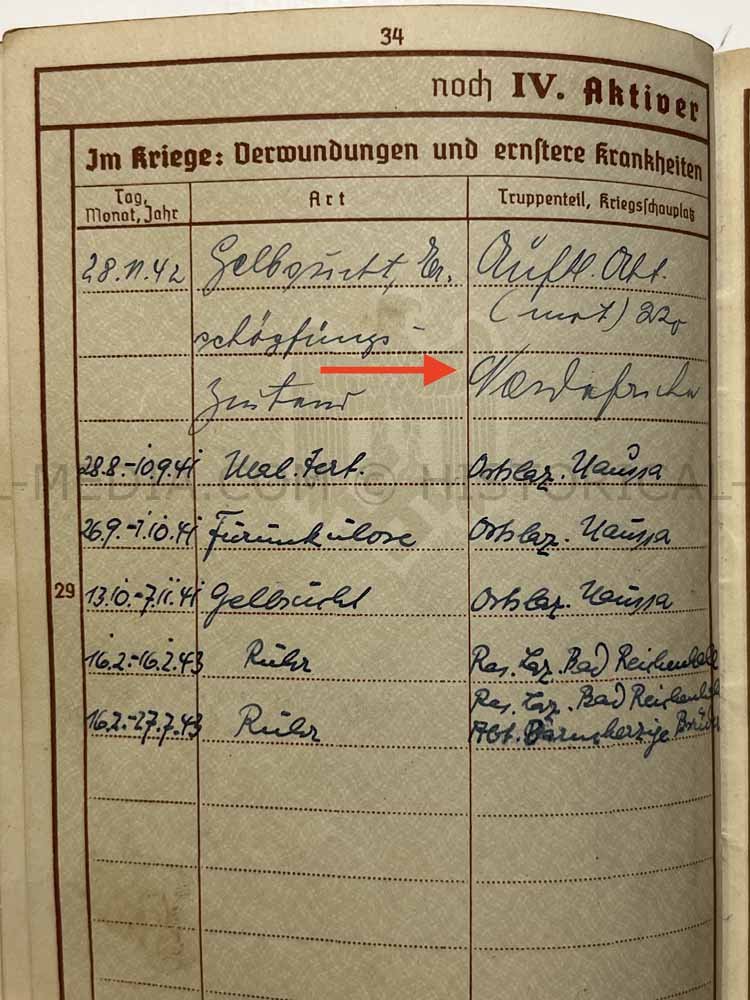 34
noch IV. Aktiver
Im Kriege: Verwundungen und ernstere Krankheiten
Tag, Monat, Jahr Art Truppenteil, Kriegsschauplatz
28.11.42 Gelbsucht, Er- Aufkl. Abt.
schöpfungs- (mot) 220
zustand Nordafrika
28.8.-10.9.41 Mal. tert. Ortslaz.
26.9.-1.10.41 Furunkulose Ortslaz.
29
13.10.-7.11.41 Gelbsucht Ortslaz.
16.2.-16.2.43 Ruhr Res. Laz. Bad Reichenhall
Res. Laz. Bad Reichenhall
16.2.-27.7.43 Ruhr Abt. Barmherzige Brüder
-MEDIA.COM © HISTORICAL-